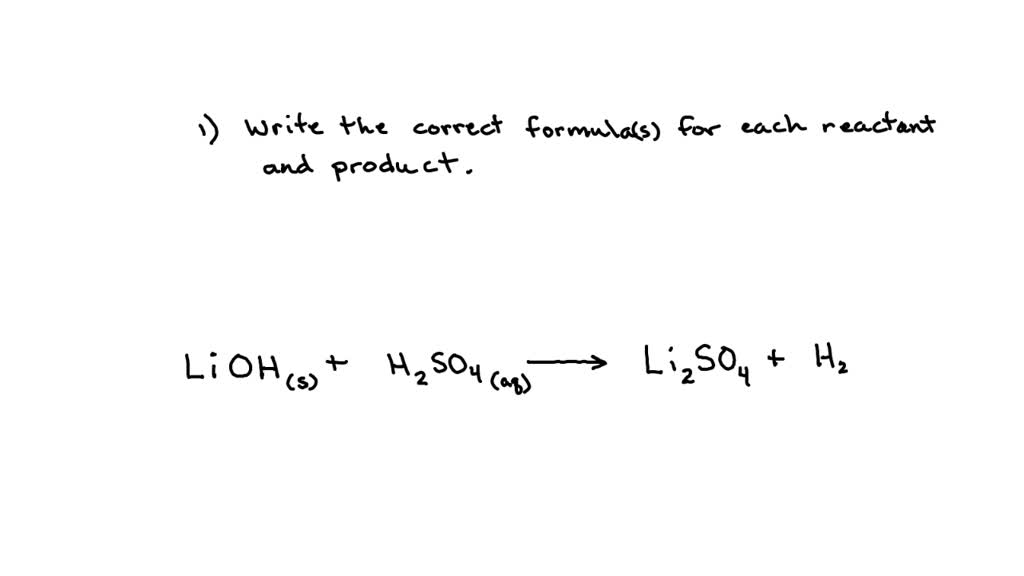 1) Write the correct formula(s) for each reactant
and product.
LiOH(s) + H₂SO₄(aq) ⟶ Li₂SO₄ + H₂